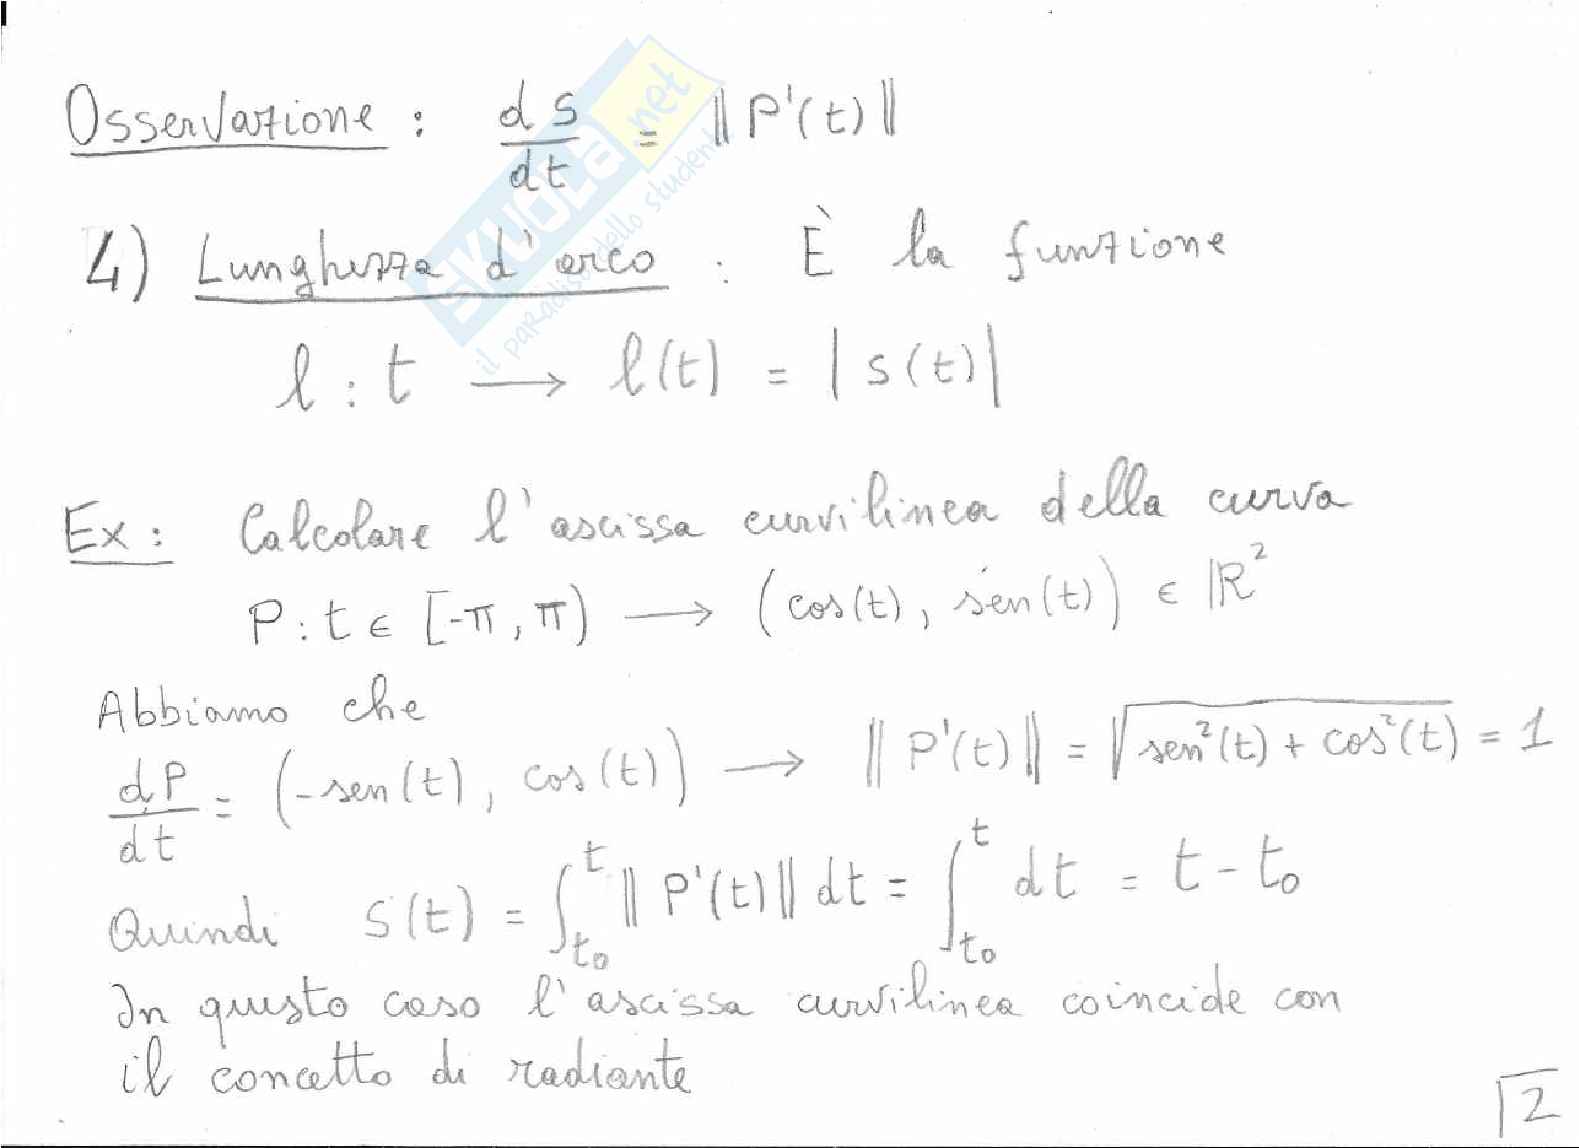 Osservazione : ds/dt = ||P'(t)||
4) Lunghezza d'arco : È la funzione
l : t → l(t) = |s(t)|
Ex: Calcolare l'ascissa curvilinea della curva
P : t ∈ [-π, π) → (cos(t), sen(t)) ∈ ℝ²
Abbiamo che
dP/dt = (-sen(t), cos(t)) → ||P'(t)|| = √(sen²(t) + cos²(t)) = 1
Quindi s(t) = ∫_{t₀}^{t} ||P'(t)|| dt = ∫_{t₀}^{t} dt = t - t₀
In questo caso l'ascissa curvilinea coincide con
il concetto di radiante
2
SKUOLA.net
il paradiso dello studente